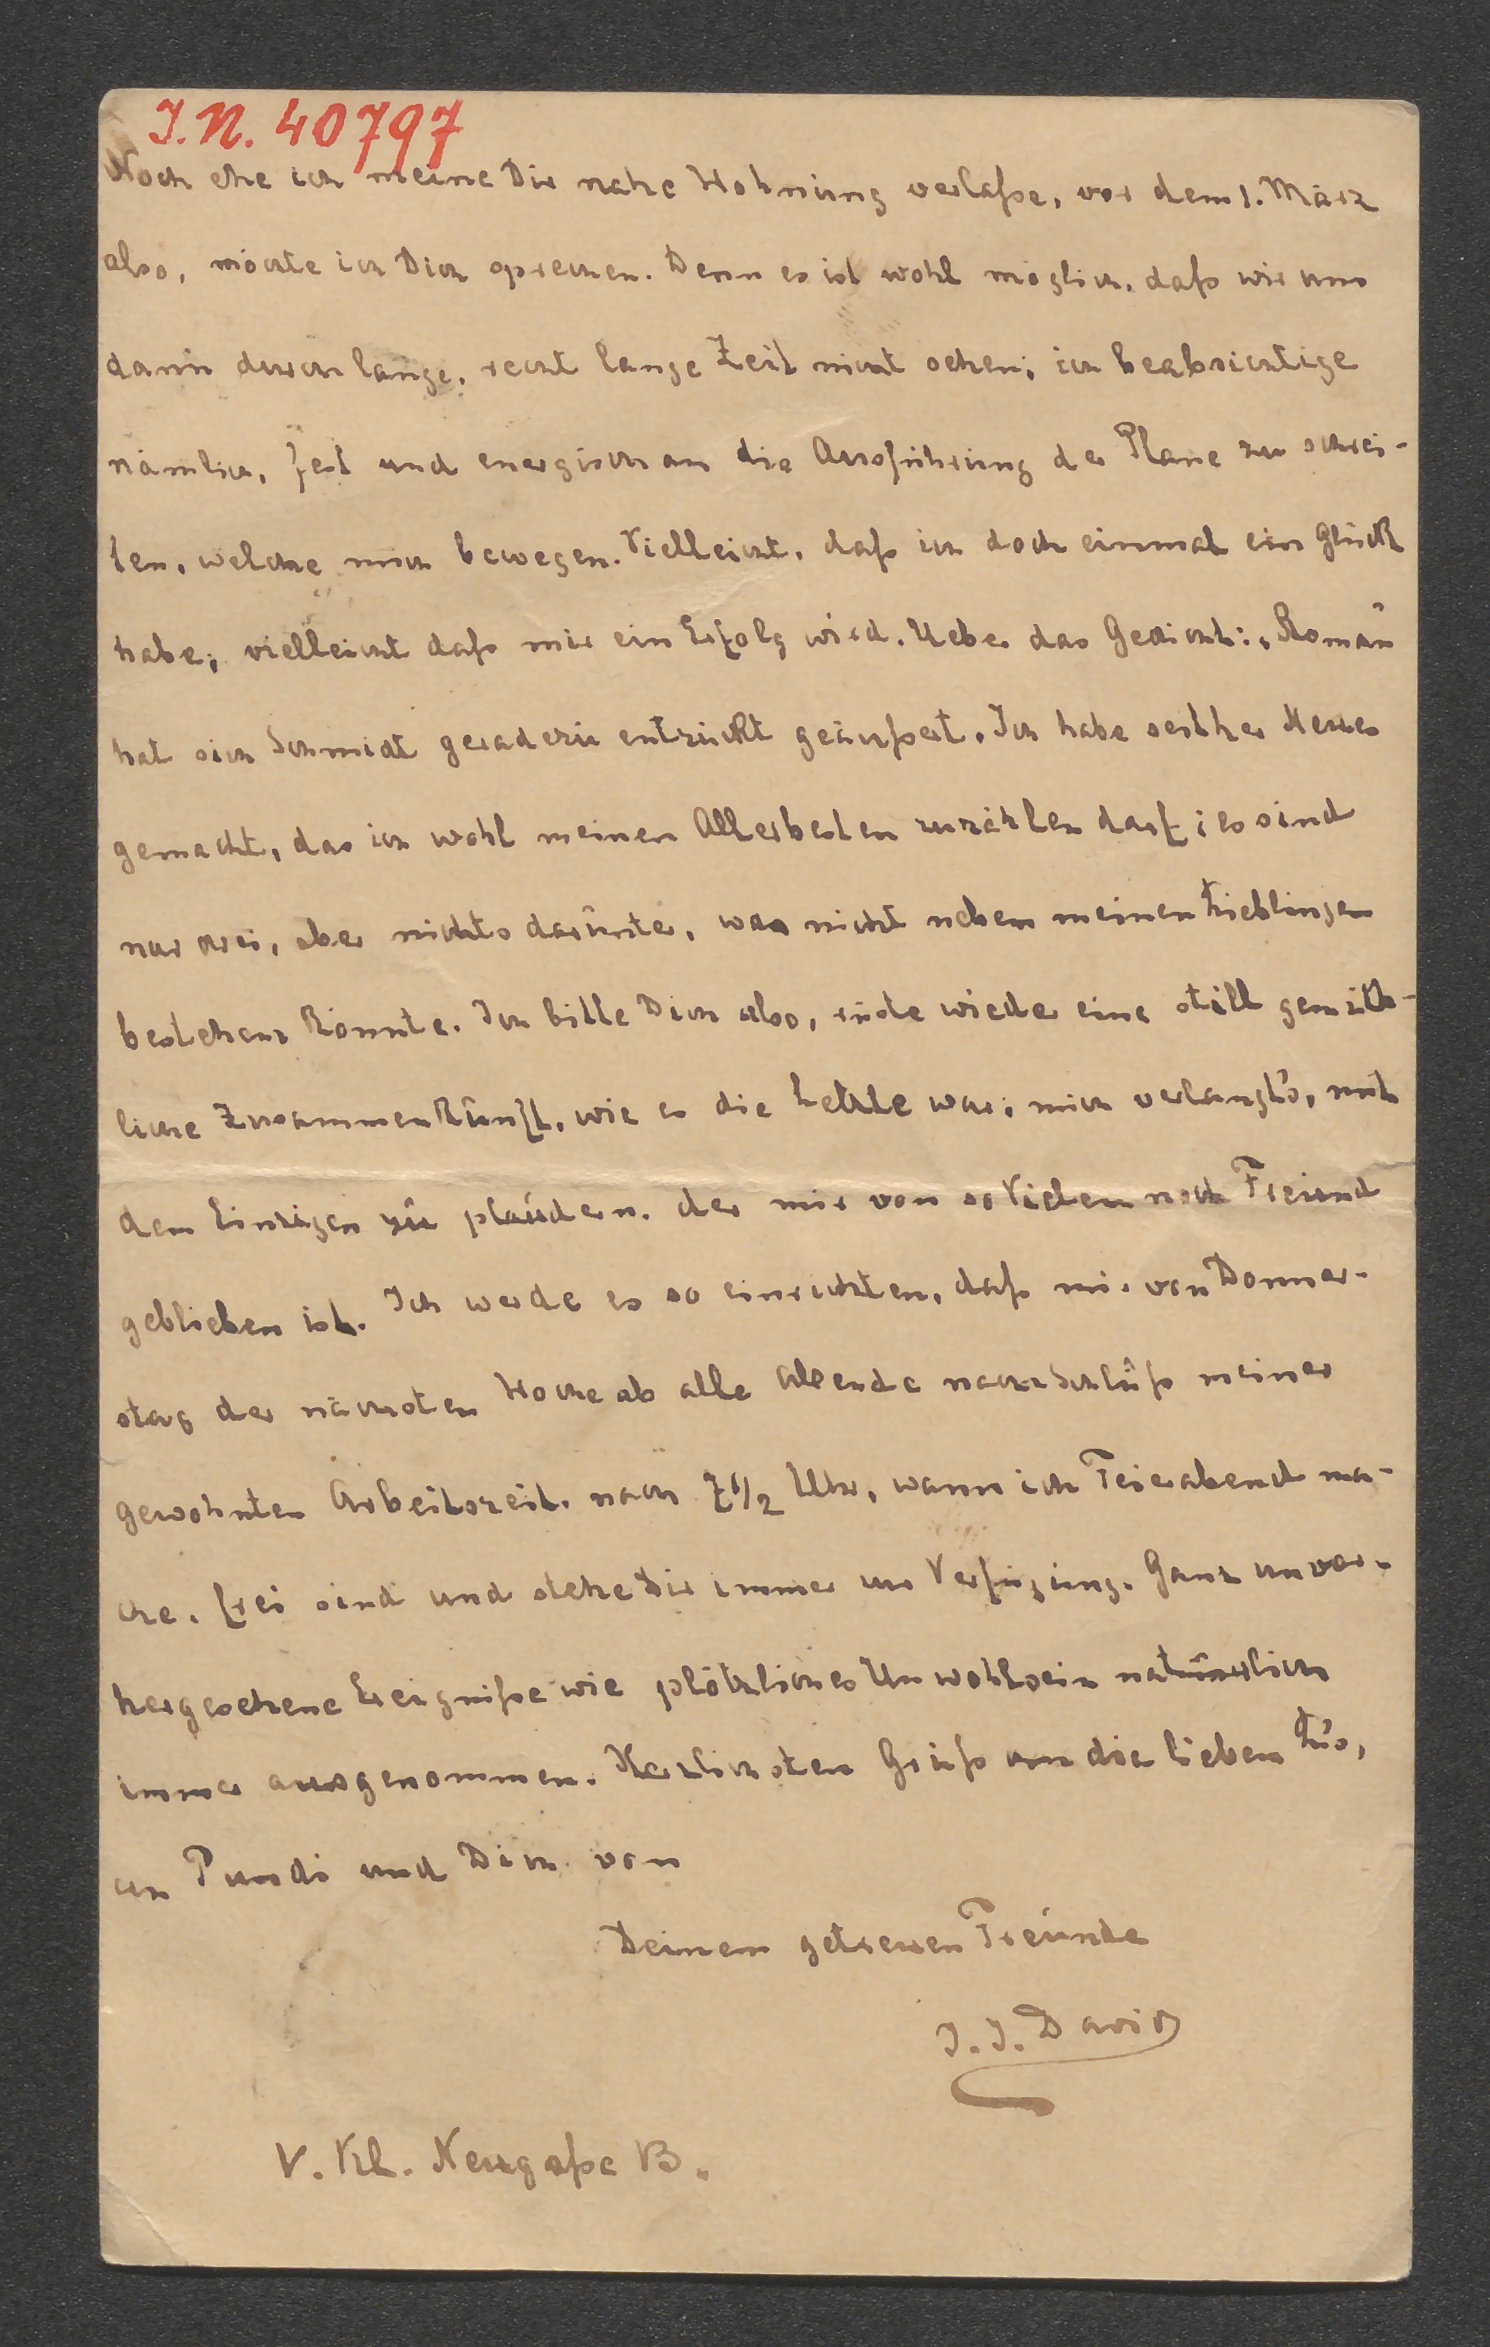 J.N. 40797
Noch ehe ich meine Dir nahe Wohnung verlaße, vor dem 1. März
also, möchte ich Dich sprechen. Denn es ist wohl möglich, daß wir uns
dann durch lange, recht lange Zeit nicht sehen; ich beabsichtige
nämlich, fest und energisch an die Ausführung der Plane zu schrei-
ten, welche mich bewegen. Vielleicht, daß ich doch einmal ein Glück
habe; vielleicht daß mir ein Erfolg wird. Ueber das Gedicht: „Roman"
hat sich Schmidt geradezu entzückt geäußert. Ich habe seither Neues
gemacht, das ich wohl meinen Allerbesten zuzählen darf; es sind
nur drei, aber nichts darunter, was nicht neben meinen Lieblingen
bestehen könnte. Ich bitte Dich also, rüste wieder eine still gemüth-
liche Zusammenkunft, wie es die Letzte war; mich verlangt's, mit
dem Einzigen zu plaudern, der mir von so Vielen noch Freund
geblieben ist. Ich werde es so einrichten, daß mir von Donner-
stag der nächsten Woche ab alle Abende nach Schluß meiner
gewohnten Arbeitszeit, nach 7 1/2 Uhr, wann ich Feierabend ma-
che, frei sind und stehe Dir immer zur Verfügung. Ganz unvor-
hergesehene Ereigniße wie plötzliches Unwohlsein natürlich
immer ausgenommen. Herzlichsten Gruß an die lieben L's,
an Pundi und Dich von
Deinem getreuen Freunde
J. J. David
V. Kl. Neugaße 13.